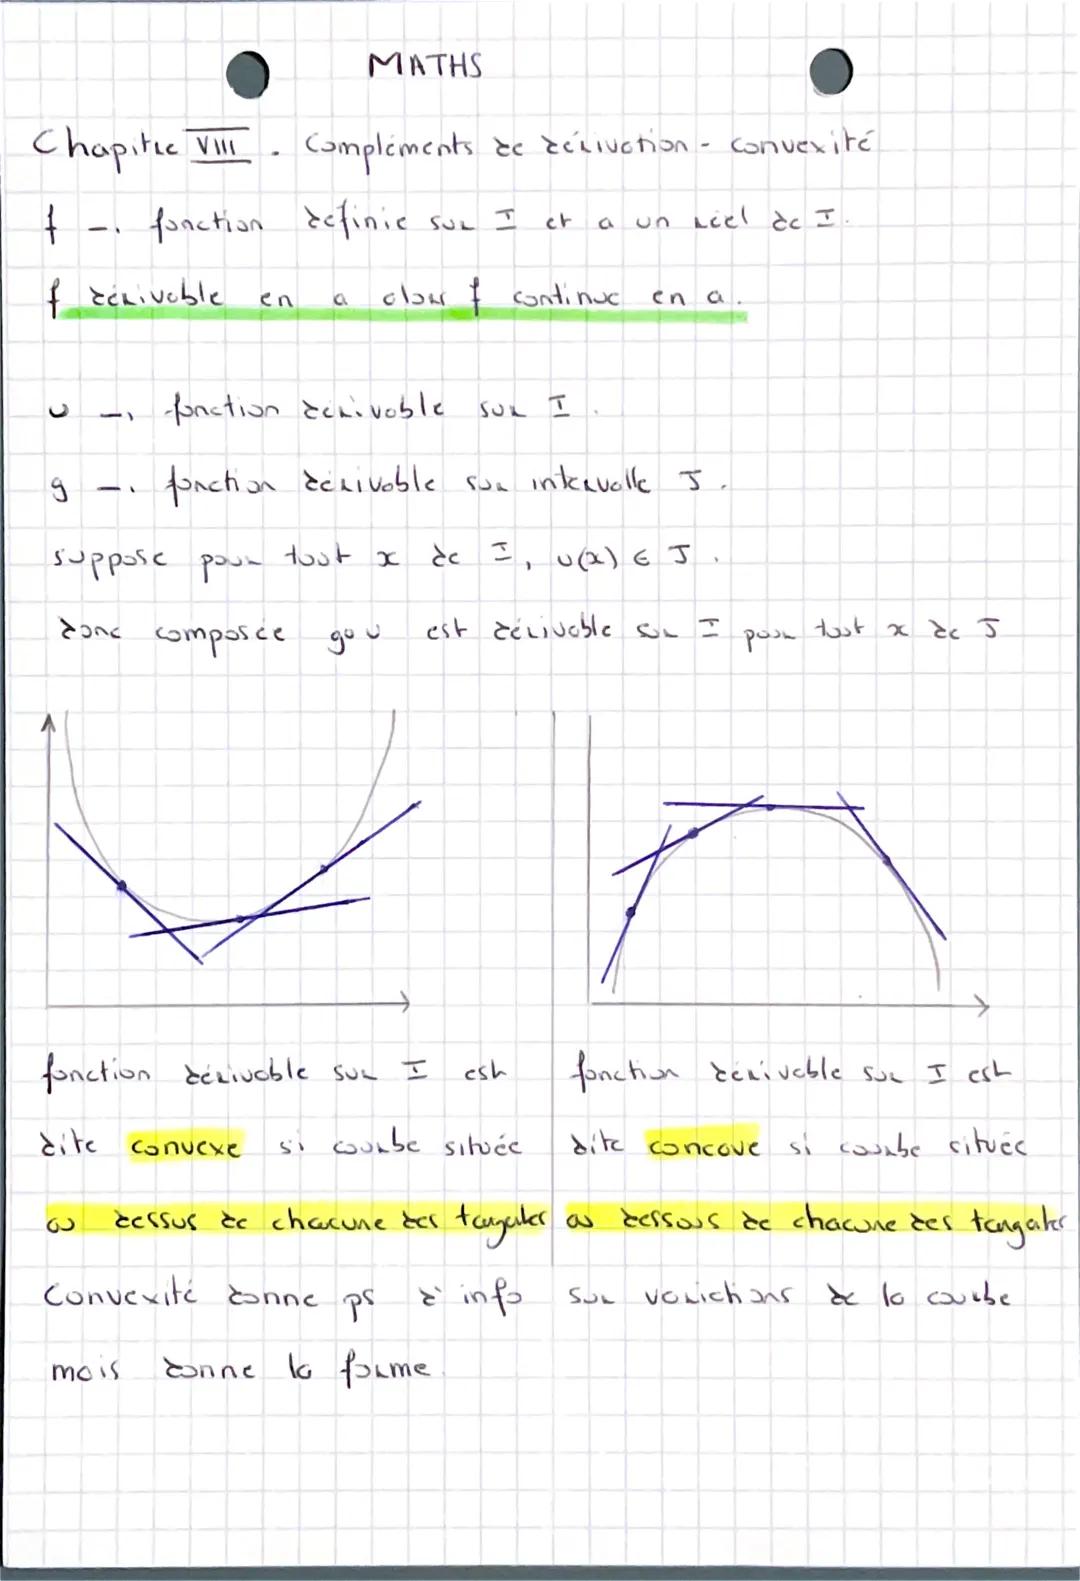 MATHS
Chapitre VIII. Compléments de dérivation - convexité
f → fonction définie sur I et a un réel de I.
f dérivable en a alors f continue en a.
u → fonction dérivable sur I.
g → fonction dérivable sur intervalle J.
suppose pour tout x de I, u(x) ∈ J.
donc composée g∘u est dérivable sur I pour tout x de J
fonction dérivable sur I est
dite convexe si courbe située
au dessus de chacune des tangentes
fonction dérivable sur I est
dite concave si courbe située
au dessous de chacune des tangentes
Convexité donne ps d'info sur variations de la courbe
mais donne la forme.